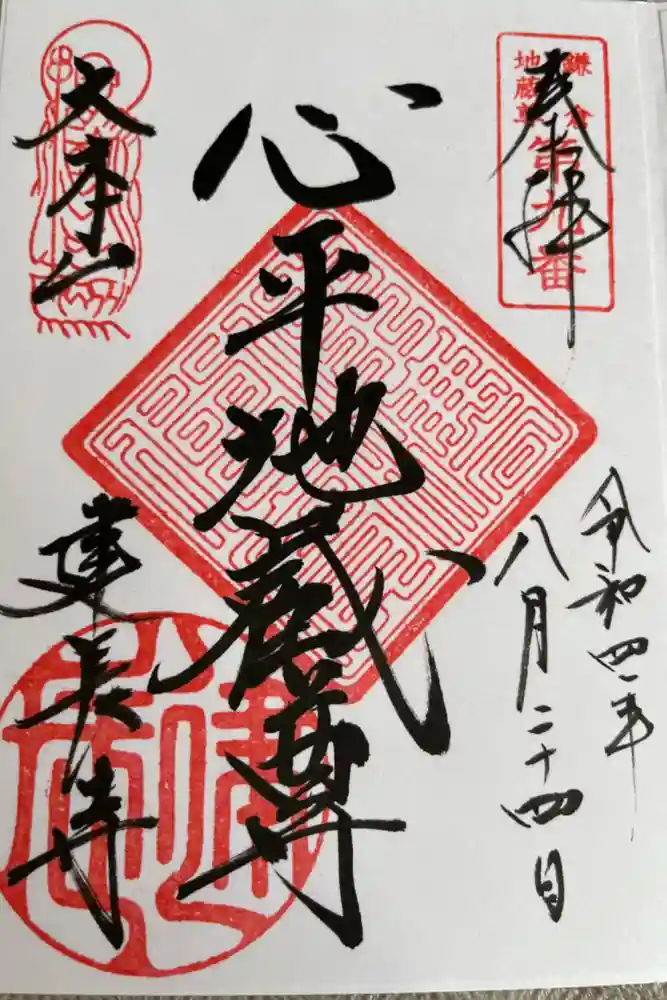 奉拝
鎌倉
地蔵尊
第九番
令和四年
八月二十四日
心平地蔵尊
大本山
建長寺